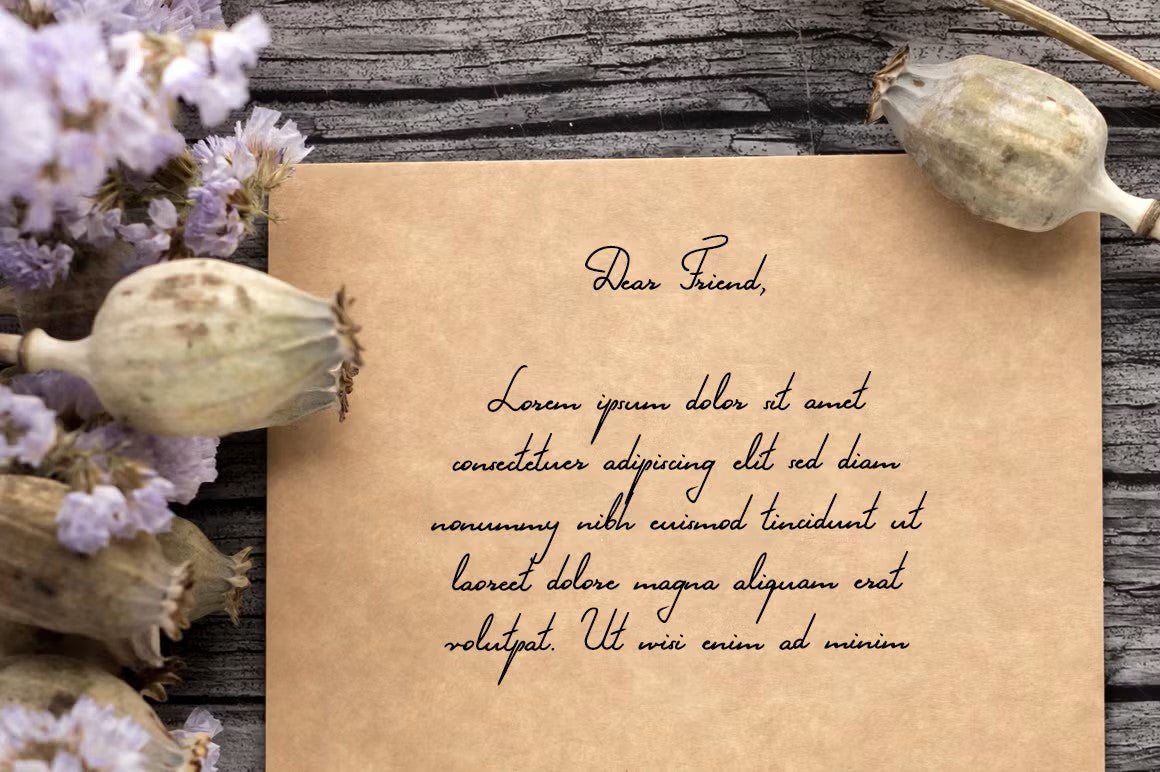 Dear Friend,
Lorem ipsum dolor sit amet
consectetuer adipiscing elit sed diam
nonummy nibh euismod tincidunt ut
laoreet dolore magna aliquam erat
volutpat. Ut wisi enim ad minim